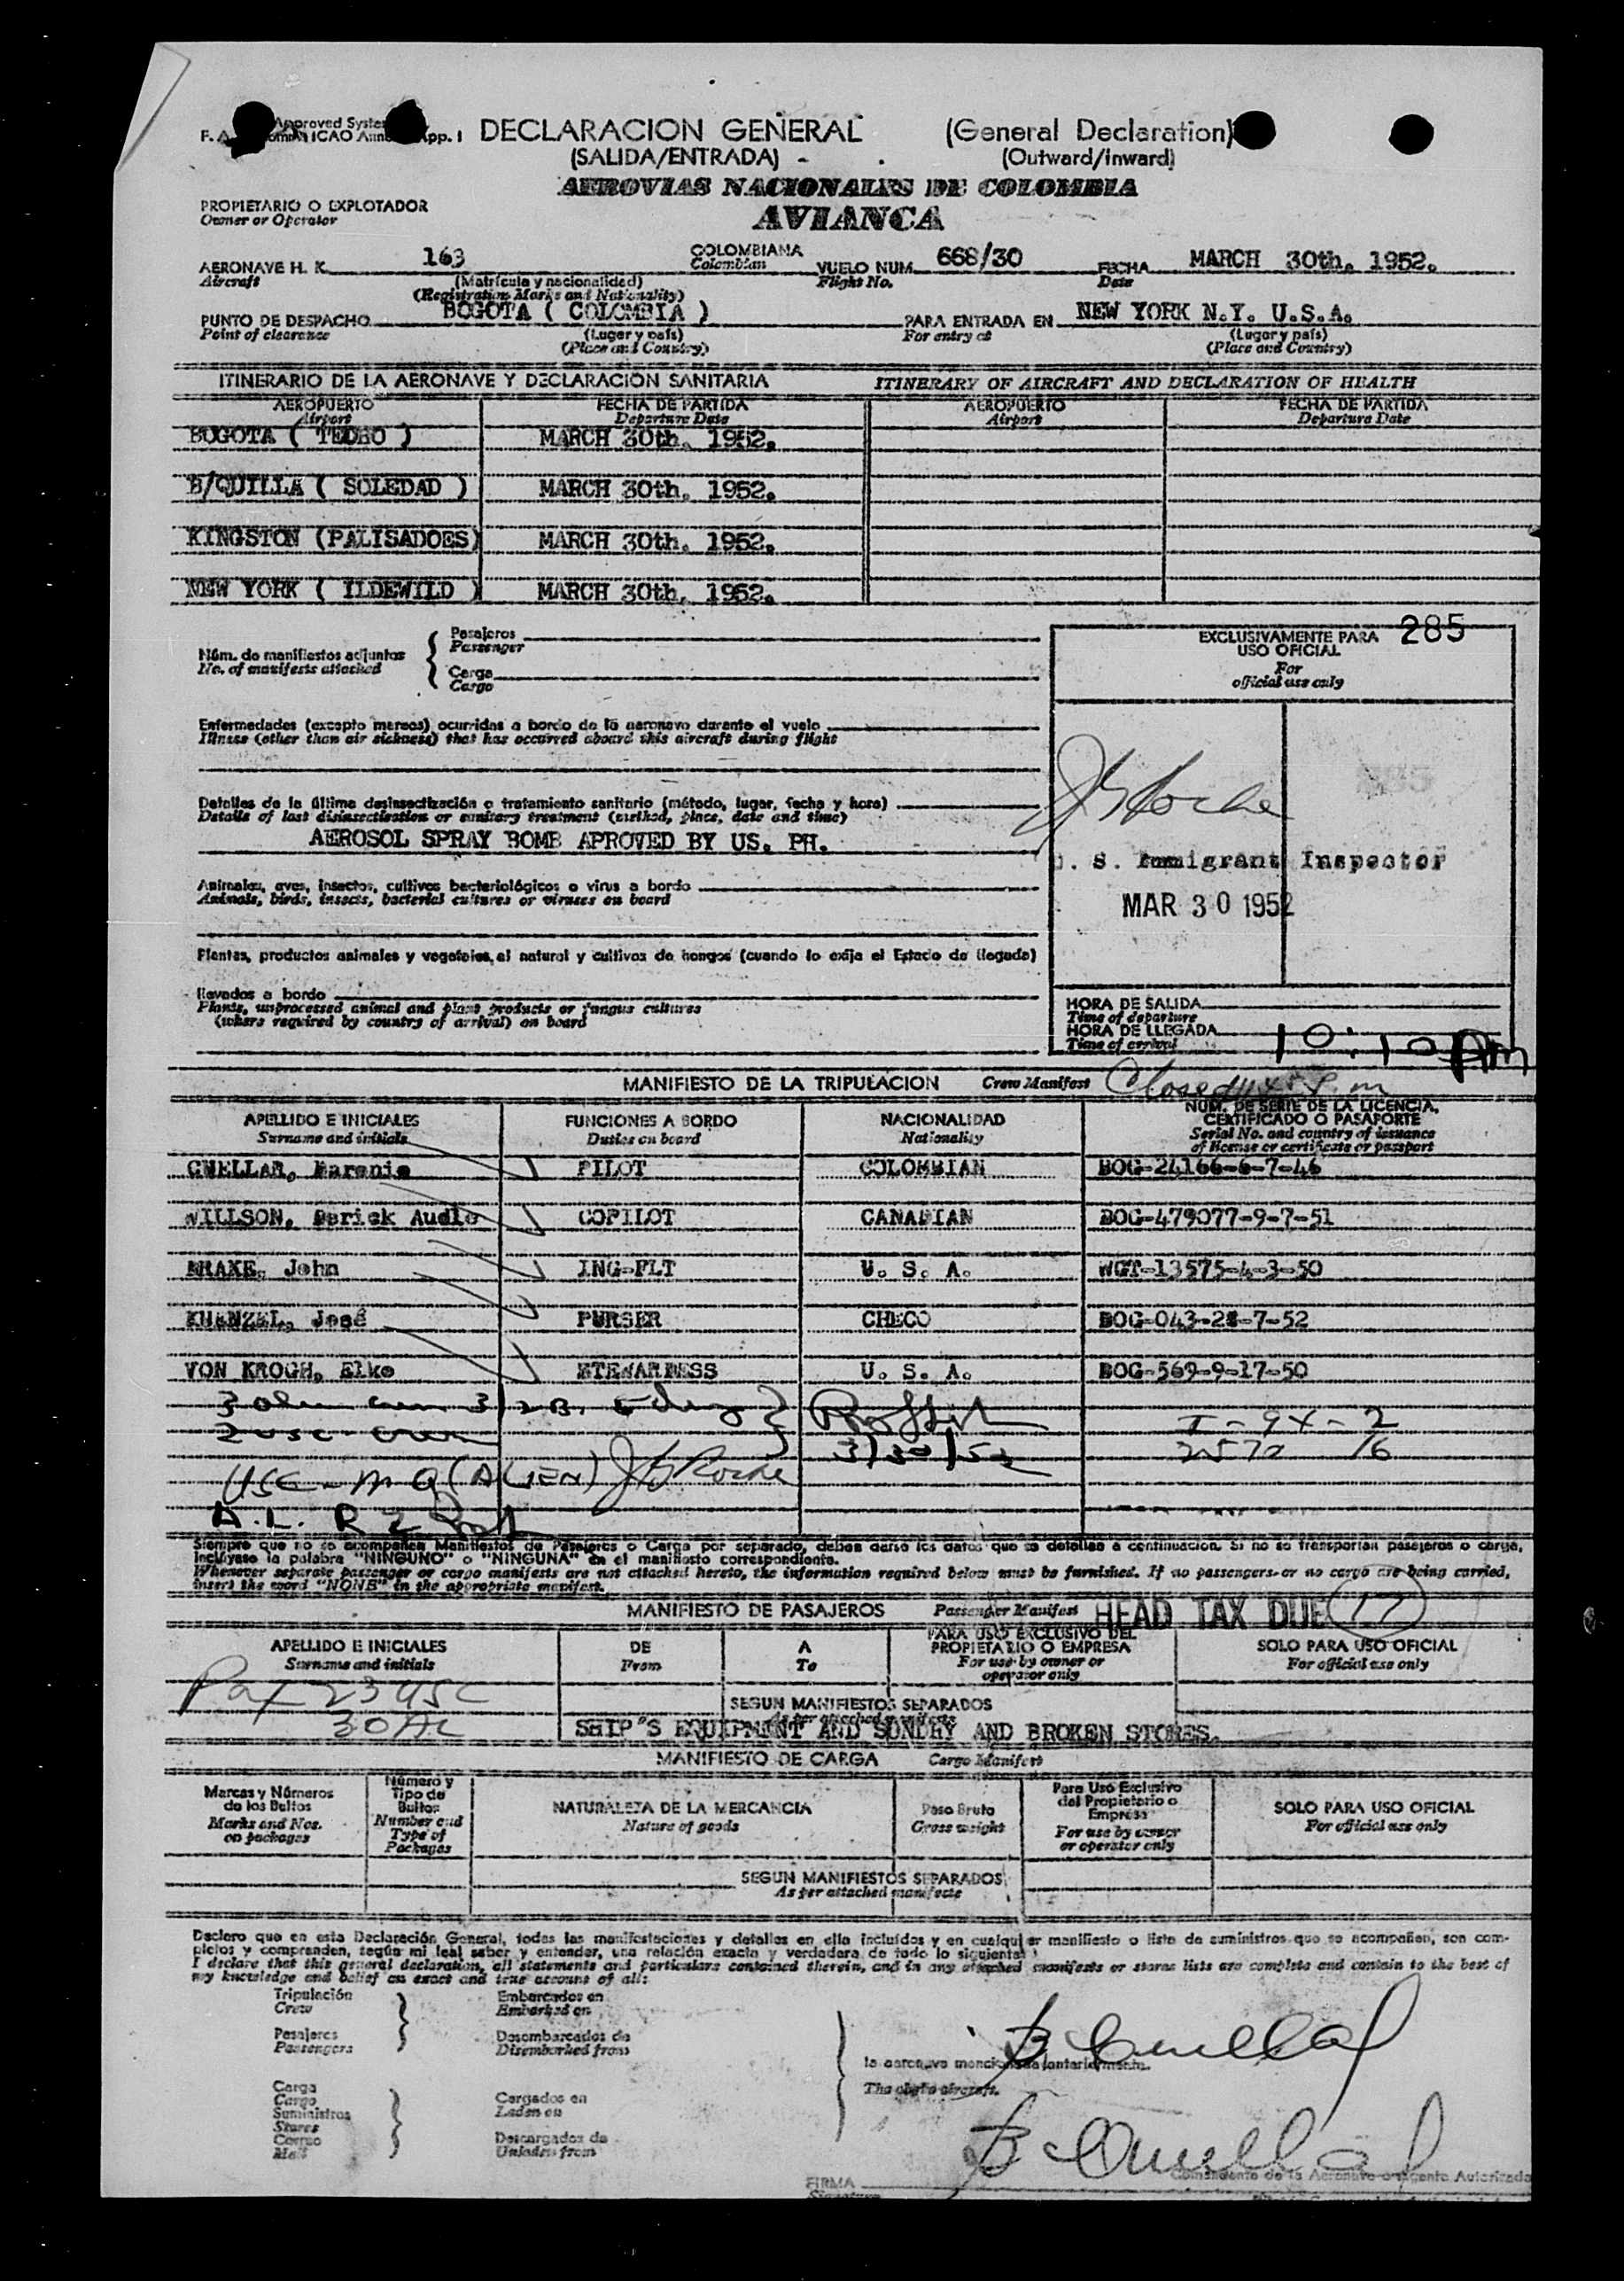 Approved System
F. A. ICAO App. I
DECLARACION GENERAL (General Declaration)
(SALIDA/ENTRADA) - (Outward/inward)
AEROVIAS NACIONALES DE COLOMBIA
AVIANCA
PROPIETARIO O EXPLOTADOR
Owner or Operator
AERONAVE H. K. 163 COLOMBIANA VUELO NUM. 668/30 FECHA MARCH 30th. 1952.
Aircraft Colombian Flight No. Date
(Matrícula y nacionalidad)
(Registration Marks and Nationality)
PUNTO DE DESPACHO BOGOTA ( COLOMBIA ) PARA ENTRADA EN NEW YORK N.Y. U.S.A.
Point of clearance (Lugar y país) For entry at (Lugar y país)
(Place and Country) (Place and Country)
ITINERARIO DE LA AERONAVE Y DECLARACION SANITARIA ITINERARY OF AIRCRAFT AND DECLARATION OF HEALTH
AEROPUERTO FECHA DE PARTIDA AEROPUERTO FECHA DE PARTIDA
Airport Departure Date Airport Departure Date
BOGOTA ( TECHO ) MARCH 30th. 1952.
B/QUILLA ( SOLEDAD ) MARCH 30th. 1952.
KINGSTON (PALISADOES) MARCH 30th. 1952.
NEW YORK ( ILDEWILD ) MARCH 30th. 1952.
285
Núm. de manifiestos adjuntos
No. of manifests attached
Pasajeros
Passenger
Carga
Cargo
EXCLUSIVAMENTE PARA
USO OFICIAL
For
official use only
Enfermedades (excepto mareos) ocurridas a bordo de la aeronave durante el vuelo
Illness (other than air sickness) that has occurred aboard this aircraft during flight
Detalles de la última desinsectización o tratamiento sanitario (método, lugar, fecha y hora)
Details of last disinsectisation or sanitary treatment (method, place, date and time)
AEROSOL SPRAY BOMB APROVED BY US. PH.
Animales, aves, insectos, cultivos bacteriológicos o virus a bordo
Animals, birds, insects, bacterial cultures or viruses on board
Plantas, productos animales y vegetales, al natural y cultivos de hongos (cuando lo exija el Estado de llegada)
llevados a bordo
Plants, unprocessed animal and plant products or fungus cultures
(where required by country of arrival) on board
. S. Immigrant Inspector
MAR 30 1952
HORA DE SALIDA
Time of departure
HORA DE LLEGADA 10:10 Am
Time of arrival
MANIFIESTO DE LA TRIPULACION Crew Manifest Closed
APELLIDO E INICIALES FUNCIONES A BORDO NACIONALIDAD NUM. DE SERIE DE LA LICENCIA,
CERTIFICADO O PASAPORTE
Surname and initials Duties on board Nationality Serial No. and country of issuance
of license or certificate or passport
CUELLAR, PILOT COLOMBIAN BOG-24166-6-7-46
WILLSON, Derick Audlo COPILOT CANADIAN BOG-479077-9-7-51
DRAKE, John ING-FLT U. S. A. WGT-13575-4-3-50
KHENZEL, José PURSER CHECO BOG-043-28-7-52
VON KROGH, Elke STEWARDESS U. S. A. BOG-569-9-17-50
3/30/52
(ALIEN)
Siempre que no se acompañen Manifiestos de Pasajeros o Carga por separado, deben darse los datos que se detallan a continuación. Si no se transportan pasajeros o carga,
inclúyase la palabra "NINGUNO" o "NINGUNA" en el manifiesto correspondiente.
Whenever separate passenger or cargo manifests are not attached hereto, the information required below must be furnished. If no passengers or no cargo are being carried,
insert the word "NONE" in the appropriate manifest.
MANIFIESTO DE PASAJEROS Passenger Manifest HEAD TAX DUE 17
APELLIDO E INICIALES DE A PARA USO EXCLUSIVO DEL
PROPIETARIO O EMPRESA SOLO PARA USO OFICIAL
Surname and initials From To For use by owner or
operator only For official use only
SEGUN MANIFIESTOS SEPARADOS
As per attached manifests
SHIP"S EQUIPMENT AND SUNDRY AND BROKEN STORES.
MANIFIESTO DE CARGA Cargo Manifest
Marcas y Números
de los Bultos
Marks and Nos.
on packages
Número y
Tipo de
Bultos
Number and
Type of
Packages
NATURALEZA DE LA MERCANCIA
Nature of goods
Peso Bruto
Gross weight
Para Uso Exclusivo
del Propietario o
Empresa
For use by owner
or operator only
SOLO PARA USO OFICIAL
For official use only
SEGUN MANIFIESTOS SEPARADOS
As per attached manifests
Declaro que en esta Declaración General, todas las manifestaciones y detalles en ella incluídos y en cualquier manifiesto o lista de suministros que se acompañen, son com-
pletos y comprenden, según mi leal saber y entender, una relación exacta y verdadera de todo lo siguiente:
I declare that this general declaration, all statements and particulars contained therein, and in any attached manifests or stores lists are complete and contain to the best of
my knowledge and belief an exact and true account of all:
Tripulación
Crew
Pasajeros
Passengers
Embarcados en
Embarked on
Desembarcados de
Disembarked from
Carga
Cargo
Suministros
Stores
Correo
Mail
Cargados en
Laden on
Descargados de
Unladen from
la aeronave mencionada anteriormente.
The aircraft.
B Cuellar
B Cuellar
FIRMA Comandante de la Aeronave o Agente Autorizado
Signature